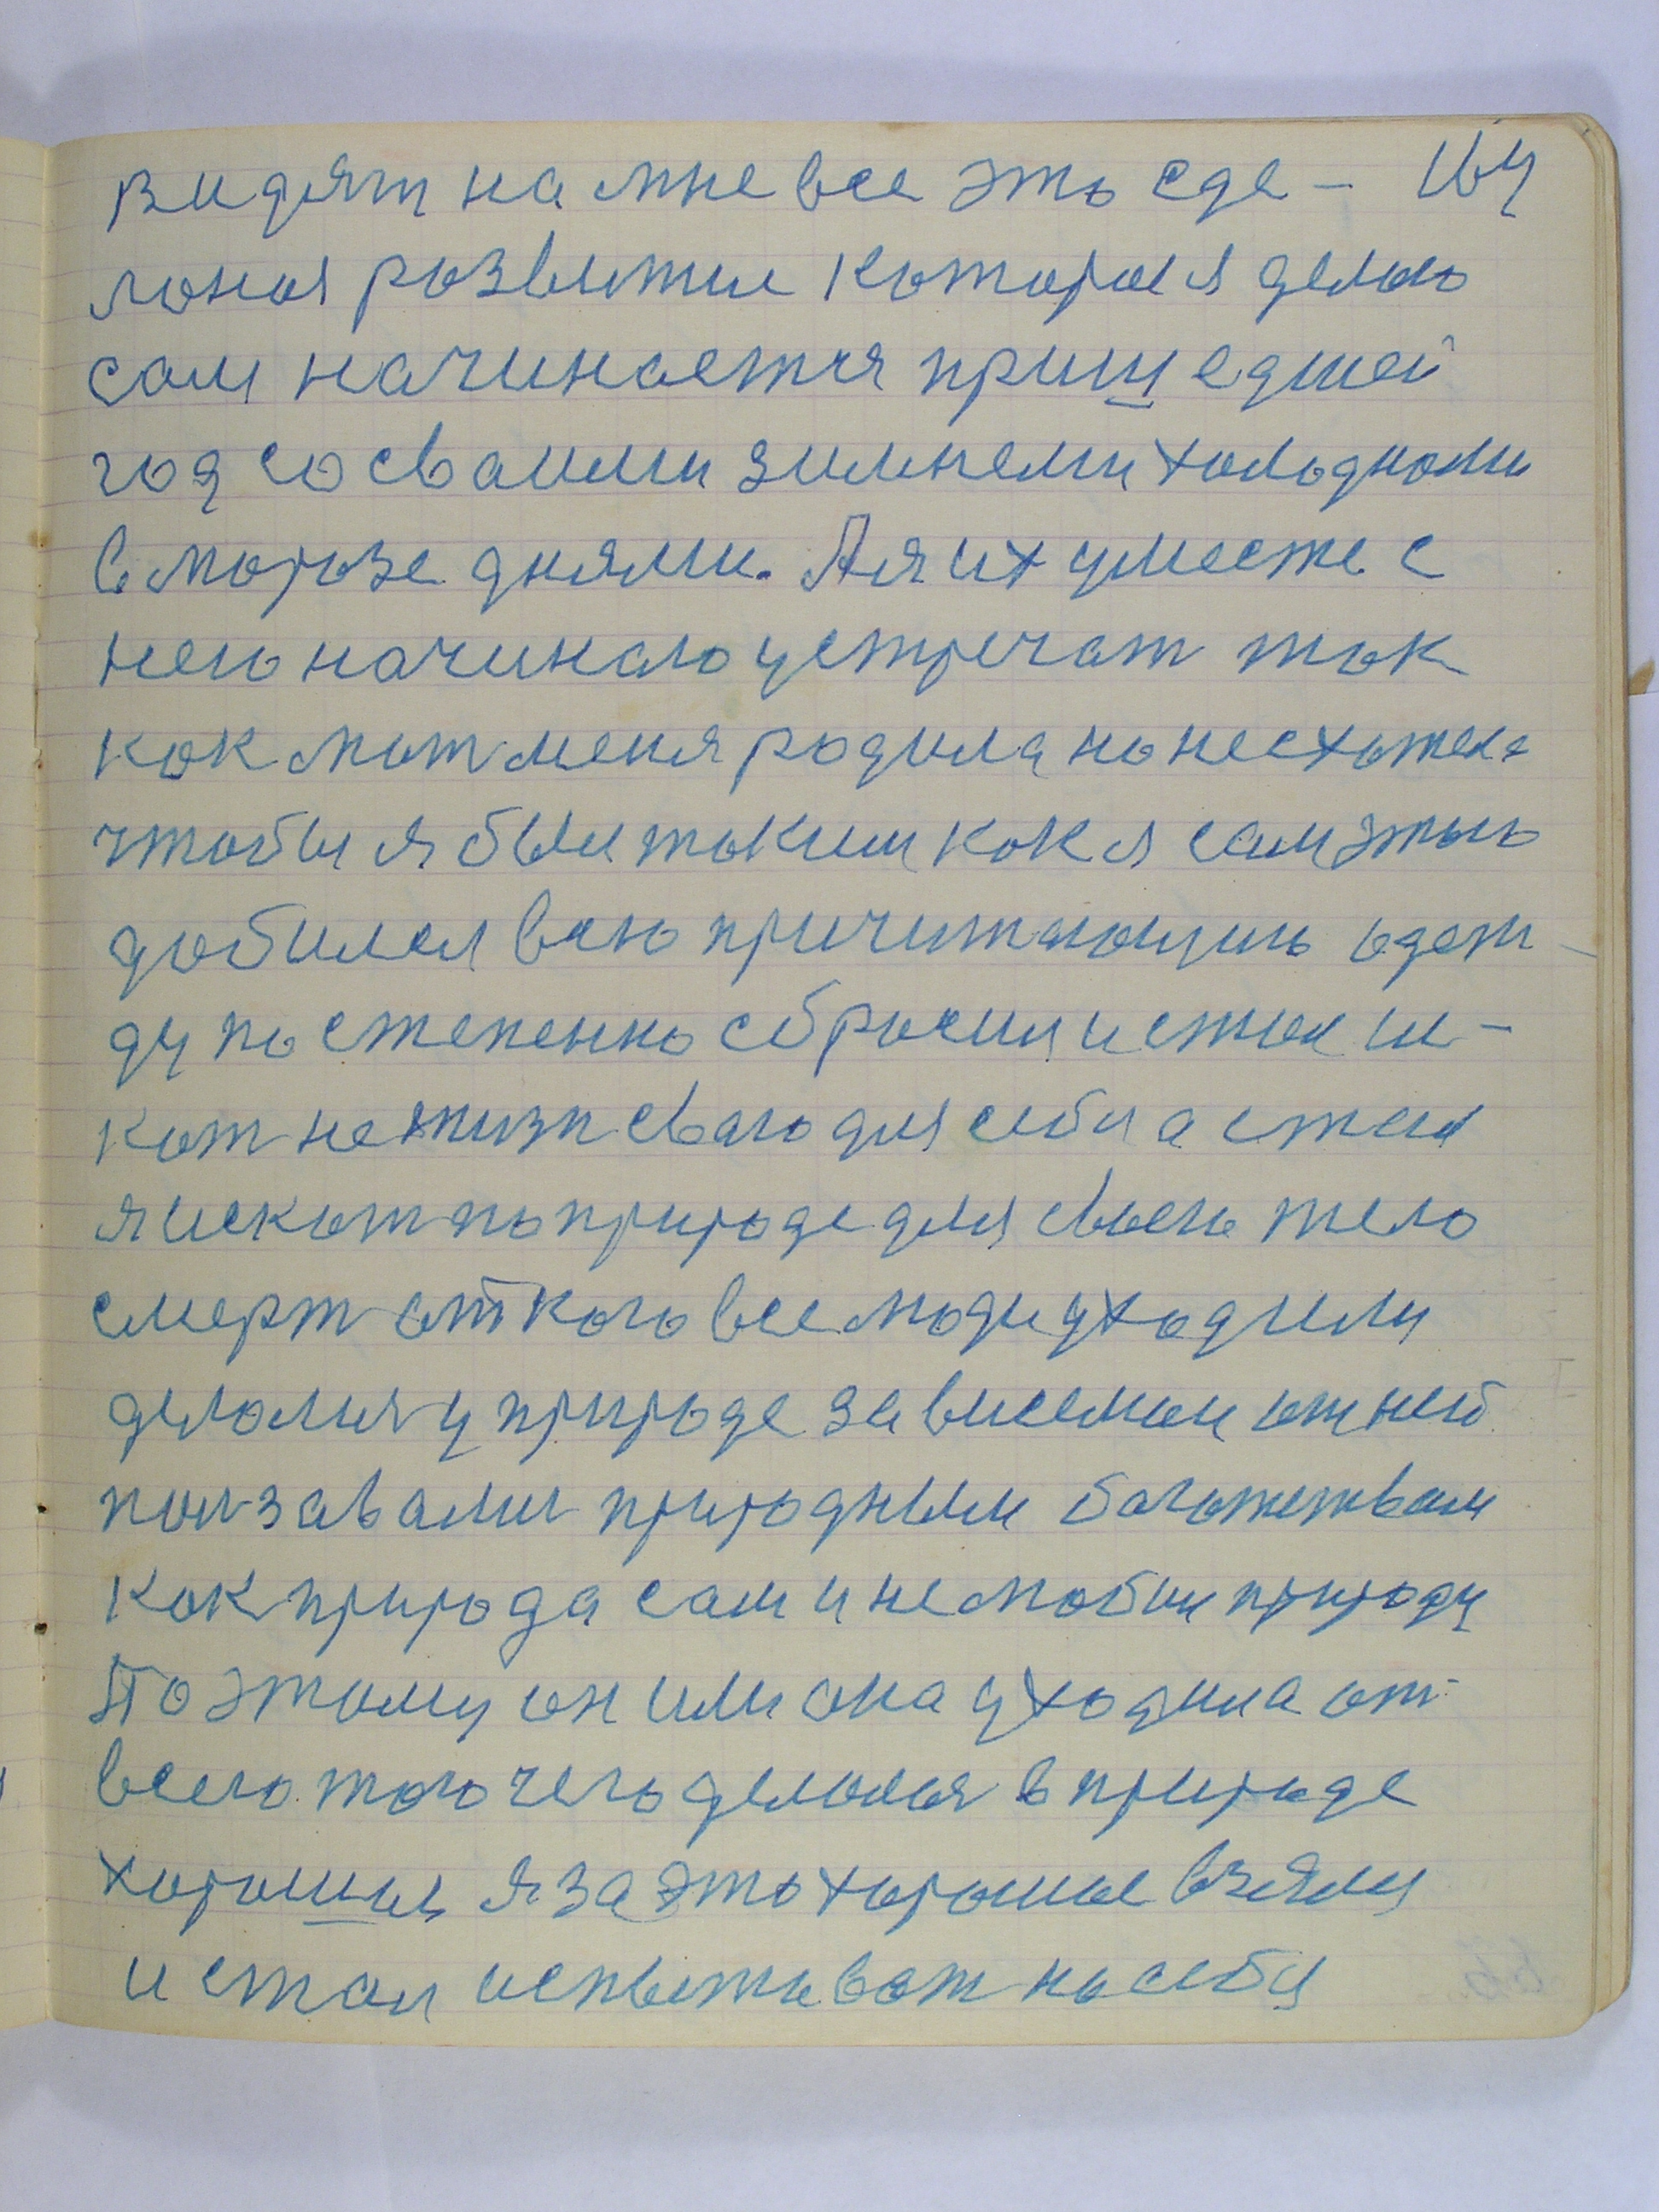 видят на мне все это сде- 164
лоноя розвитие которое я делаю
сам начинается пришедшей
год со сваими зимнеми холодноми
в морозе днями. А я их уместе с
нею начинаю устречат ток
кок мат меня родила но не схотела
чтобы я был таким кок я сам этого
добился всю причитающию одеж-
ду постепенно сбросил и стал и-
скат не жизн сваю для себя а стал
я искат по природе для своего тело
смерт от кого все люди уходили
делалися у природе зависемом от ней
ползавалис природным богатством
как природа сам и не любил природу
Поэтому он или она уходила от
всего того чего делалоя в природе
хорошие я за это хорошое взялся
и стал испытыват на себя